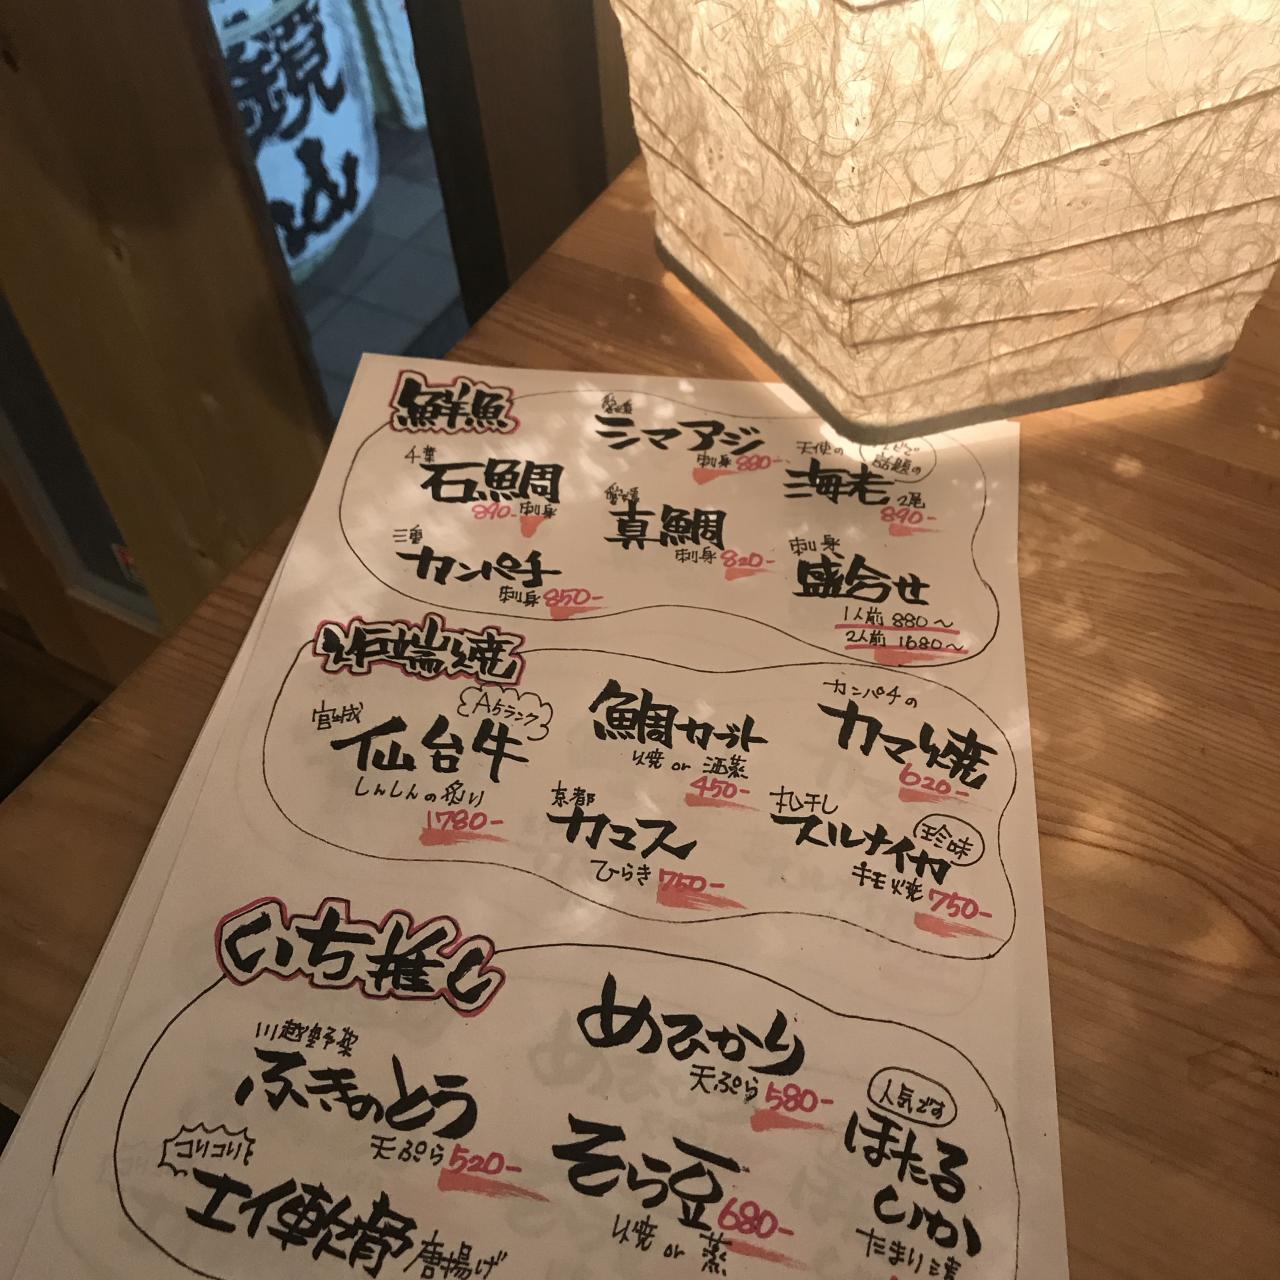 鏡山
鮮魚
愛媛
シマアジ
刺身 880-
千葉
石鯛
890- 刺身
天使の
話題の
海老 2尾
890-
愛媛
真鯛
刺身 820-
三重
カンパチ
刺身 850-
刺身
盛合せ
1人前 880〜
2人前 1680〜
炉端焼
宮城
A5ランク
仙台牛
しんしんの炙り
1780-
鯛カブト
焼 or 酒蒸
450-
カンパチの
カマ焼
620-
京都
カマス
ひらき 750-
丸干し
スルメイカ
珍味
キモ焼 750-
いち推し
川越野菜
ふきのとう
天ぷら 520-
めひかり
天ぷら 580-
人気です
ほたる
いか
たまり漬
そら豆 680-
焼 or 蒸
コリコリ
エイ軟骨
唐揚げ